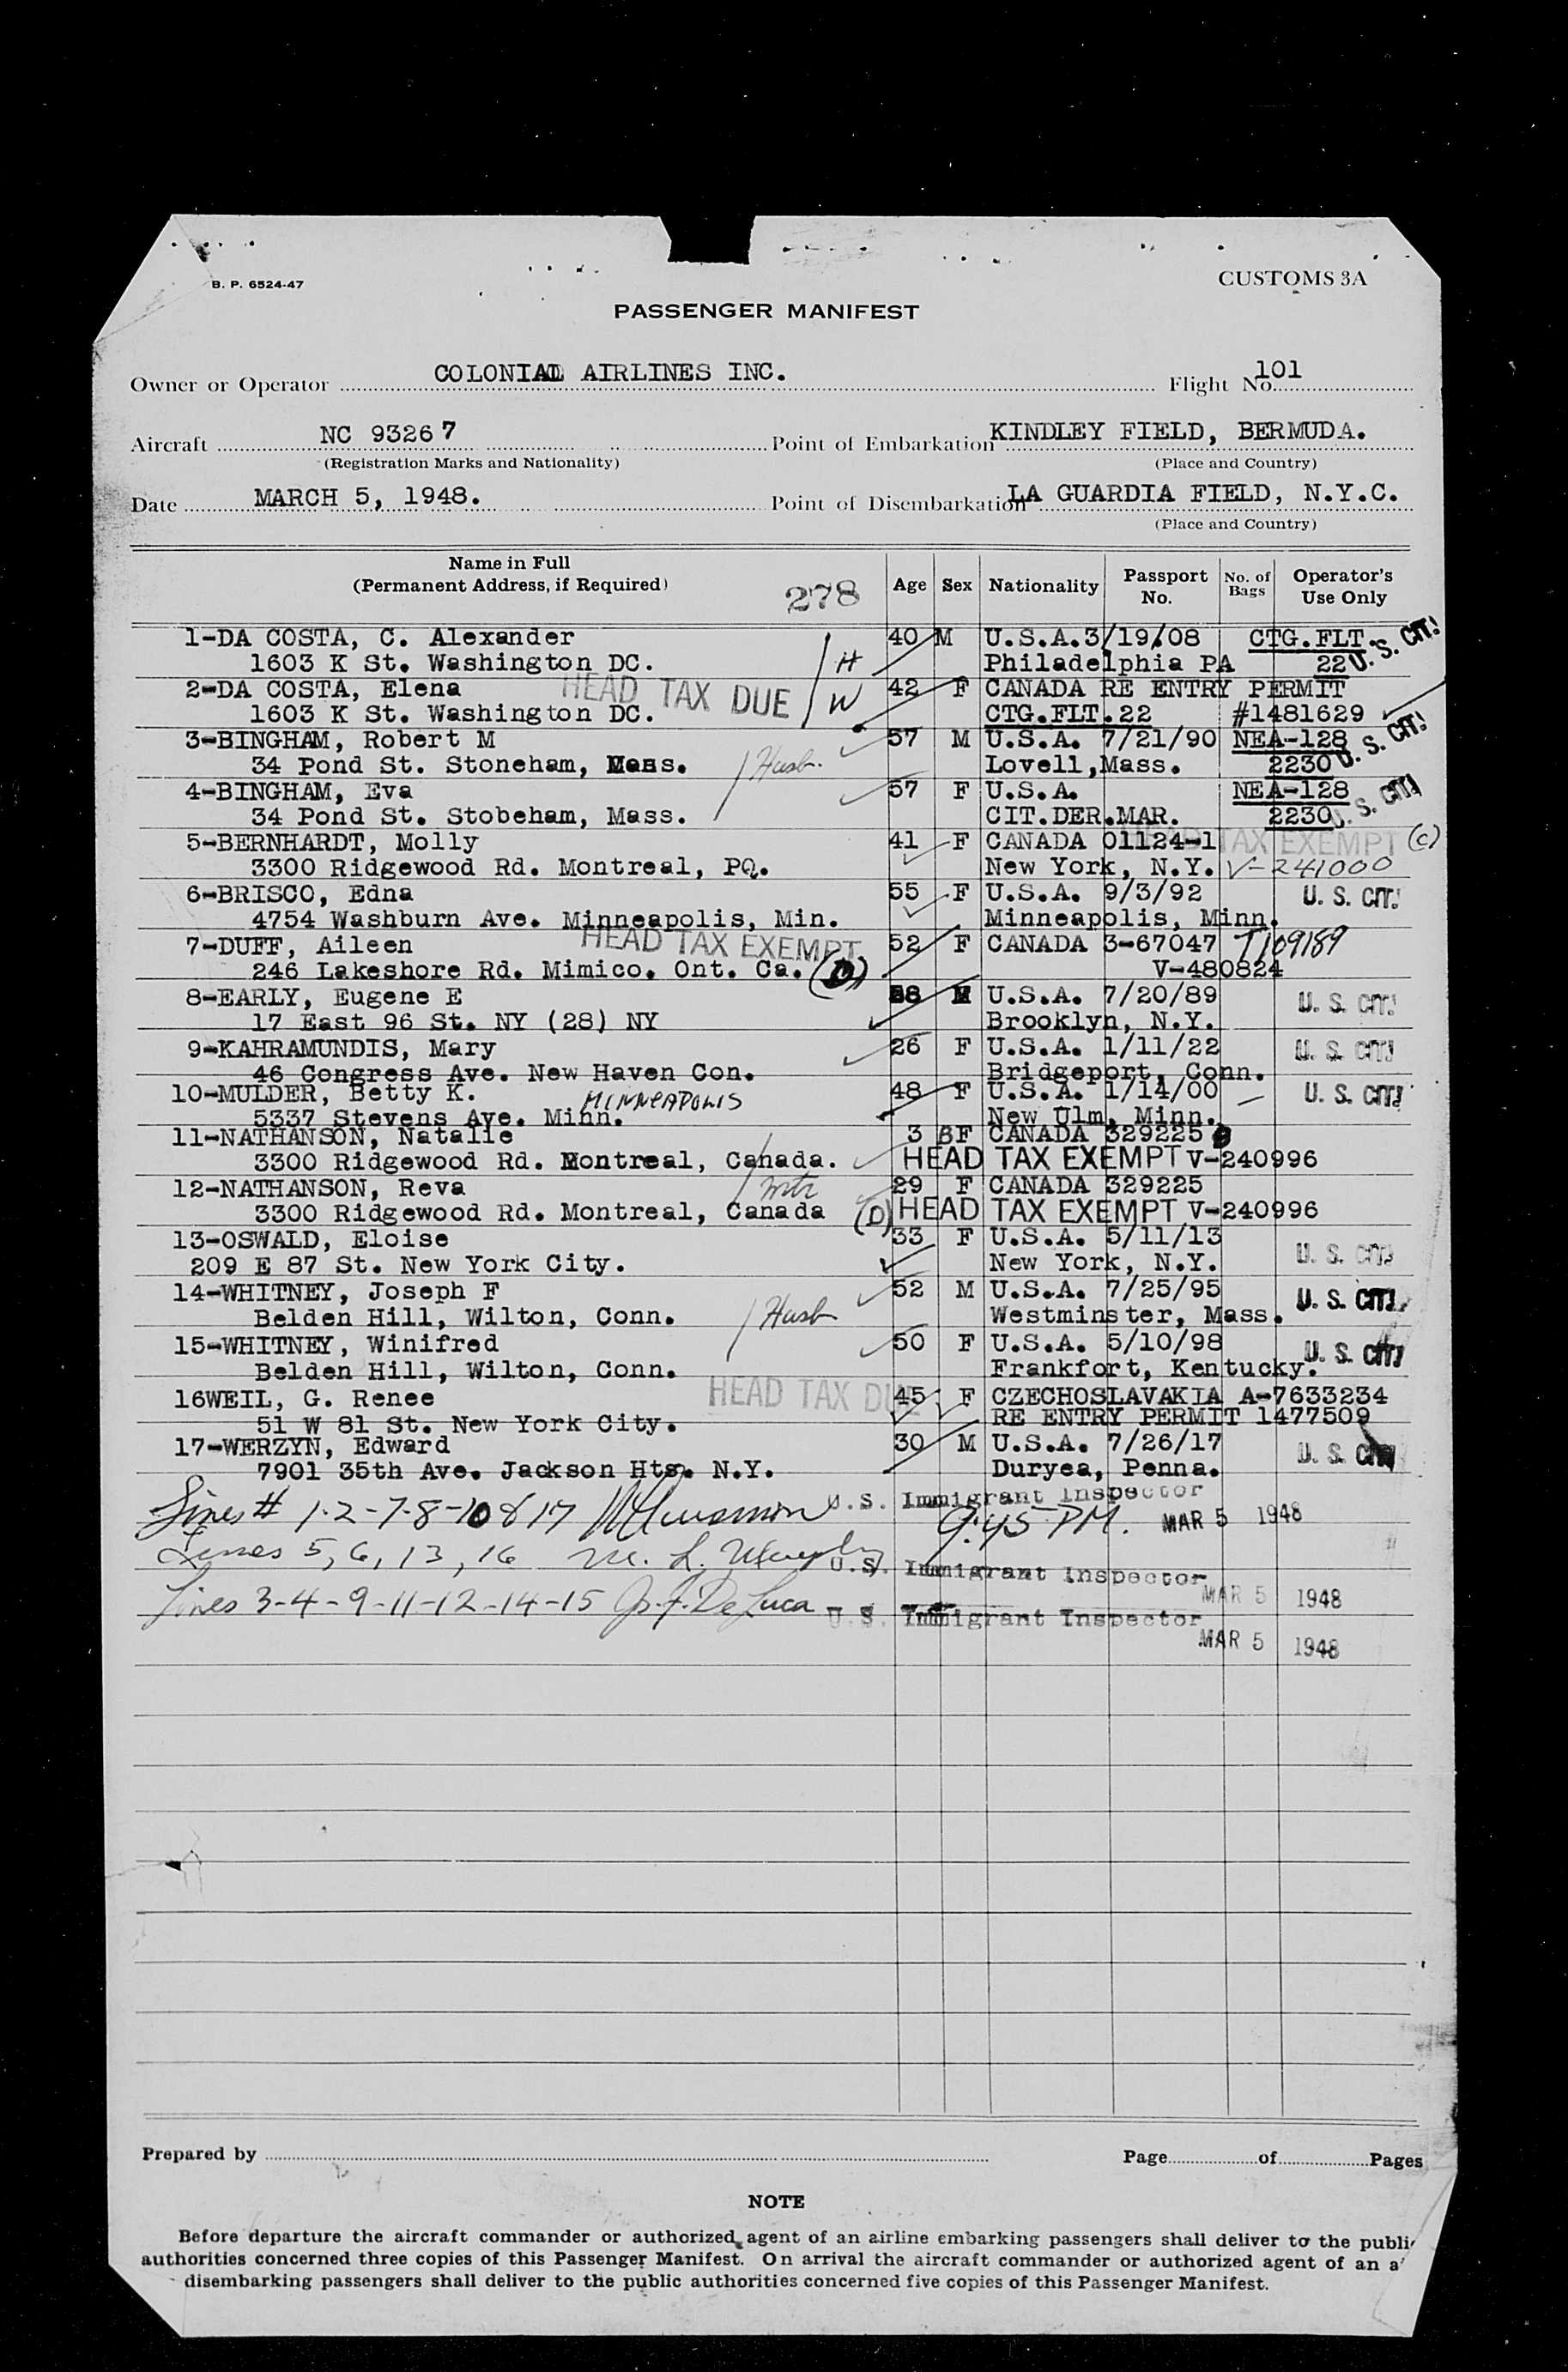 B. P. 6524-47
CUSTOMS 3A
PASSENGER MANIFEST
Owner or Operator COLONIAL AIRLINES INC. Flight No. 101
Aircraft NC 93267 Point of Embarkation KINDLEY FIELD, BERMUDA.
(Registration Marks and Nationality) (Place and Country)
Date MARCH 5, 1948. Point of Disembarkation LA GUARDIA FIELD, N.Y.C.
(Place and Country)
Name in Full (Permanent Address, if Required) 278 Age Sex Nationality Passport No. No. of Bags Operator's Use Only
1-DA COSTA, C. Alexander 40 M U.S.A. 3/19/08 CTG.FLT. U. S. CIT!
1603 K St. Washington DC. H Philadelphia PA 22
2-DA COSTA, Elena HEAD TAX DUE 42 F CANADA RE ENTRY PERMIT
1603 K St. Washington DC. W CTG.FLT.22 #1481629
3-BINGHAM, Robert M 57 M U.S.A. 7/21/90 NEA-128 U. S. CIT!
34 Pond St. Stoneham, Mass. Husb. Lovell,Mass. 2230
4-BINGHAM, Eva 57 F U.S.A. NEA-128 U. S. CIT!
34 Pond St. Stobeham, Mass. CIT.DER.MAR. 2230
5-BERNHARDT, Molly 41 F CANADA 01124-1 HEAD TAX EXEMPT (C)
3300 Ridgewood Rd. Montreal, PQ. New York, N.Y. V-241000
6-BRISCO, Edna 55 F U.S.A. 9/3/92 U. S. CIT!
4754 Washburn Ave. Minneapolis, Min. Minneapolis, Minn.
7-DUFF, Aileen HEAD TAX EXEMPT 52 F CANADA 3-67047 T109189
246 Lakeshore Rd. Mimico. Ont. Ca. (D) V-480824
8-EARLY, Eugene E 58 M U.S.A. 7/20/89 U. S. CIT!
17 East 96 St. NY (28) NY Brooklyn, N.Y.
9-KAHRAMUNDIS, Mary 26 F U.S.A. 1/11/22 U. S. CIT!
46 Congress Ave. New Haven Con. Bridgeport, Conn.
10-MULDER, Betty K. MINNEAPOLIS 48 F U.S.A. 1/14/00 U. S. CIT!
5337 Stevens Ave. Minn. New Ulm, Minn.
11-NATHANSON, Natalie 3 F CANADA 329225
3300 Ridgewood Rd. Montreal, Canada. HEAD TAX EXEMPT V-240996
12-NATHANSON, Reva mtr 29 F CANADA 329225
3300 Ridgewood Rd. Montreal, Canada (D) HEAD TAX EXEMPT V-240996
13-OSWALD, Eloise 33 F U.S.A. 5/11/13 U. S. CIT!
209 E 87 St. New York City. New York, N.Y.
14-WHITNEY, Joseph F 52 M U.S.A. 7/25/95 U. S. CIT!
Belden Hill, Wilton, Conn. Husb Westminster, Mass.
15-WHITNEY, Winifred 50 F U.S.A. 5/10/98 U. S. CIT!
Belden Hill, Wilton, Conn. Frankfort, Kentucky.
16WEIL, G. Renee HEAD TAX DUE 45 F CZECHOSLAVAKIA A-7633234
51 W 81 St. New York City. RE ENTRY PERMIT 1477509
17-WERZYN, Edward 30 M U.S.A. 7/26/17 U. S. CIT!
7901 35th Ave. Jackson Hts. N.Y. Duryea, Penna.
Lines # 1-2-7-8-10 & 17 U.S. Immigrant Inspector
9:45 PM. MAR 5 1948
Lines 5, 6, 13, 16 M. L. U.S. Immigrant Inspector
MAR 5 1948
Lines 3-4-9-11-12-14-15 De Luca U.S. Immigrant Inspector
MAR 5 1948
Prepared by Page of Pages
NOTE
Before departure the aircraft commander or authorized agent of an airline embarking passengers shall deliver to the public
authorities concerned three copies of this Passenger Manifest. On arrival the aircraft commander or authorized agent of an a
disembarking passengers shall deliver to the public authorities concerned five copies of this Passenger Manifest.